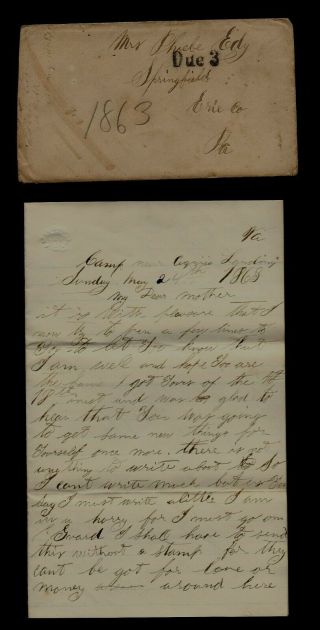 Mrs Phebe Edy
Due 3
Springfield
Erie Co
Pa
1863
Va
Camp near Landing
Sunday May 24th 1863
My Dear Mother
it is with pleasure that I
now try to pen a few lines to
You to let You know that
I am well and hope You are
the same I got Yours of the
18th inst and was glad to
hear that You was going
to get some new things for
Yourself once more. there is not
anything to write about So
I cant write much but
day I must write a little I am
in a hurry for I must go on
Guard I shall have to send
this without a stamp for they
cant be got for love or
money around here